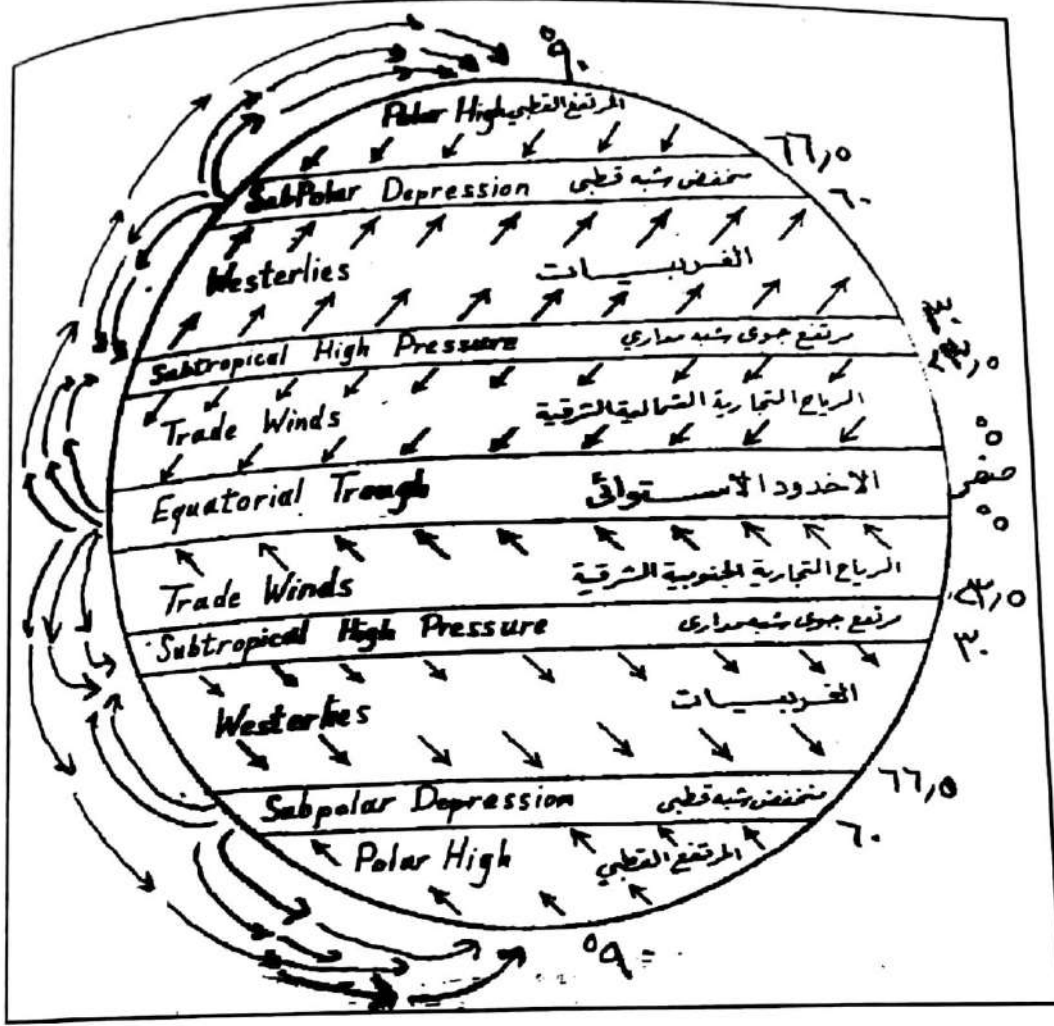 °٩٠
Polar High المرتفع القطبي
٦٦,٥
SubPolar Depression منخفض شبه قطبي
٦٠
Westerlies الغربيــــات
٣٠
Subtropical High Pressure مرتفع جوى شبه مداري
٢٣,٥
Trade Winds الرياح التجارية الشمالية الشرقية
°٥
صفر
Equatorial Trough الأخدود الأستوائى
°٥
Trade Winds الرياح التجارية الجنوبية الشرقية
٢٣,٥
Subtropical High Pressure مرتفع جوى شبه مدارى
٣٠
Westerlies الغربيــــات
٦٦,٥
Subpolar Depression منخفض شبه قطبي
٦٠
Polar High المرتفع القطبي
°٩٠